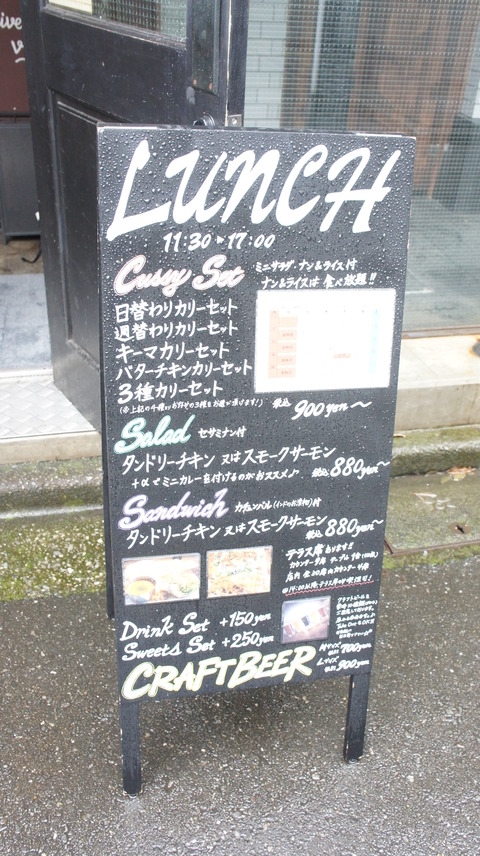 LUNCH
11:30▸17:00
Curry Set
ミニサラダ ナン&ライス付
ナン&ライスは 食べ放題!!
日替わりカリーセット
週替わりカリーセット
キーマカリーセット
バターチキンカリーセット
3種カリーセット
(※上記の4種からお好きの3種をお選び頂けます!)
税込 900yen〜
Salad セサミナン付
タンドリーチキン 又はスモークサーモン
+αでミニカレーを付けるのがおススメ♪ 税込 880yen〜
Sandwich カチュンバル(インドのお漬物)付
タンドリーチキン 又はスモークサーモン
税込 880yen〜
テラス席あります!!
Drink Set +150yen
Sweets Set +250yen
Mサイズ 700yen
Lサイズ 900yen
CRAFT BEER